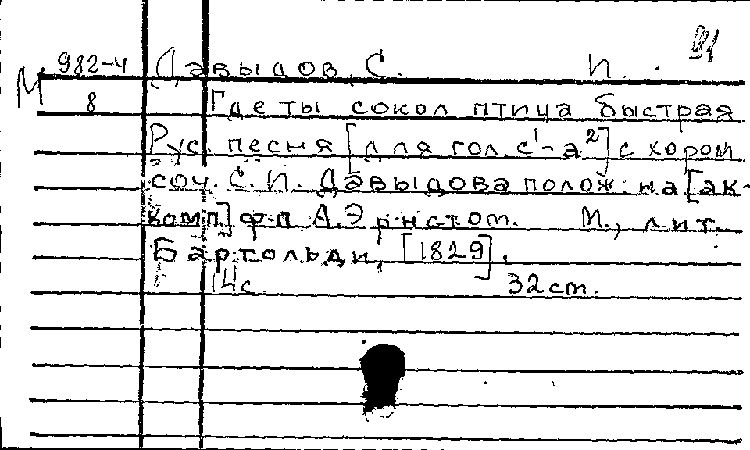 91
М 982-4 Давыдов, С. И.
8 Где ты сокол птица быстрая
Рус. песня [для гол. c¹-a²] с хором
соч. С. И. Давыдова полож. на [ак-
комп] ф-п А. Эрнстом. М., лит.
Бартольди, [1829].
14с 32 cm.